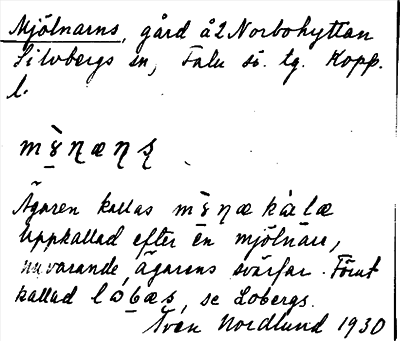 Mjölnarns, gård å 2 Norbohyttan
Silvbergs sn, Falu sö. tg. Kopp.
l.
Ägaren kallas
Uppkallad efter en mjölnare,
nuvarande ägarens svärfar. Förut
kallad se Lobergs.
Sven Nordlund 1930